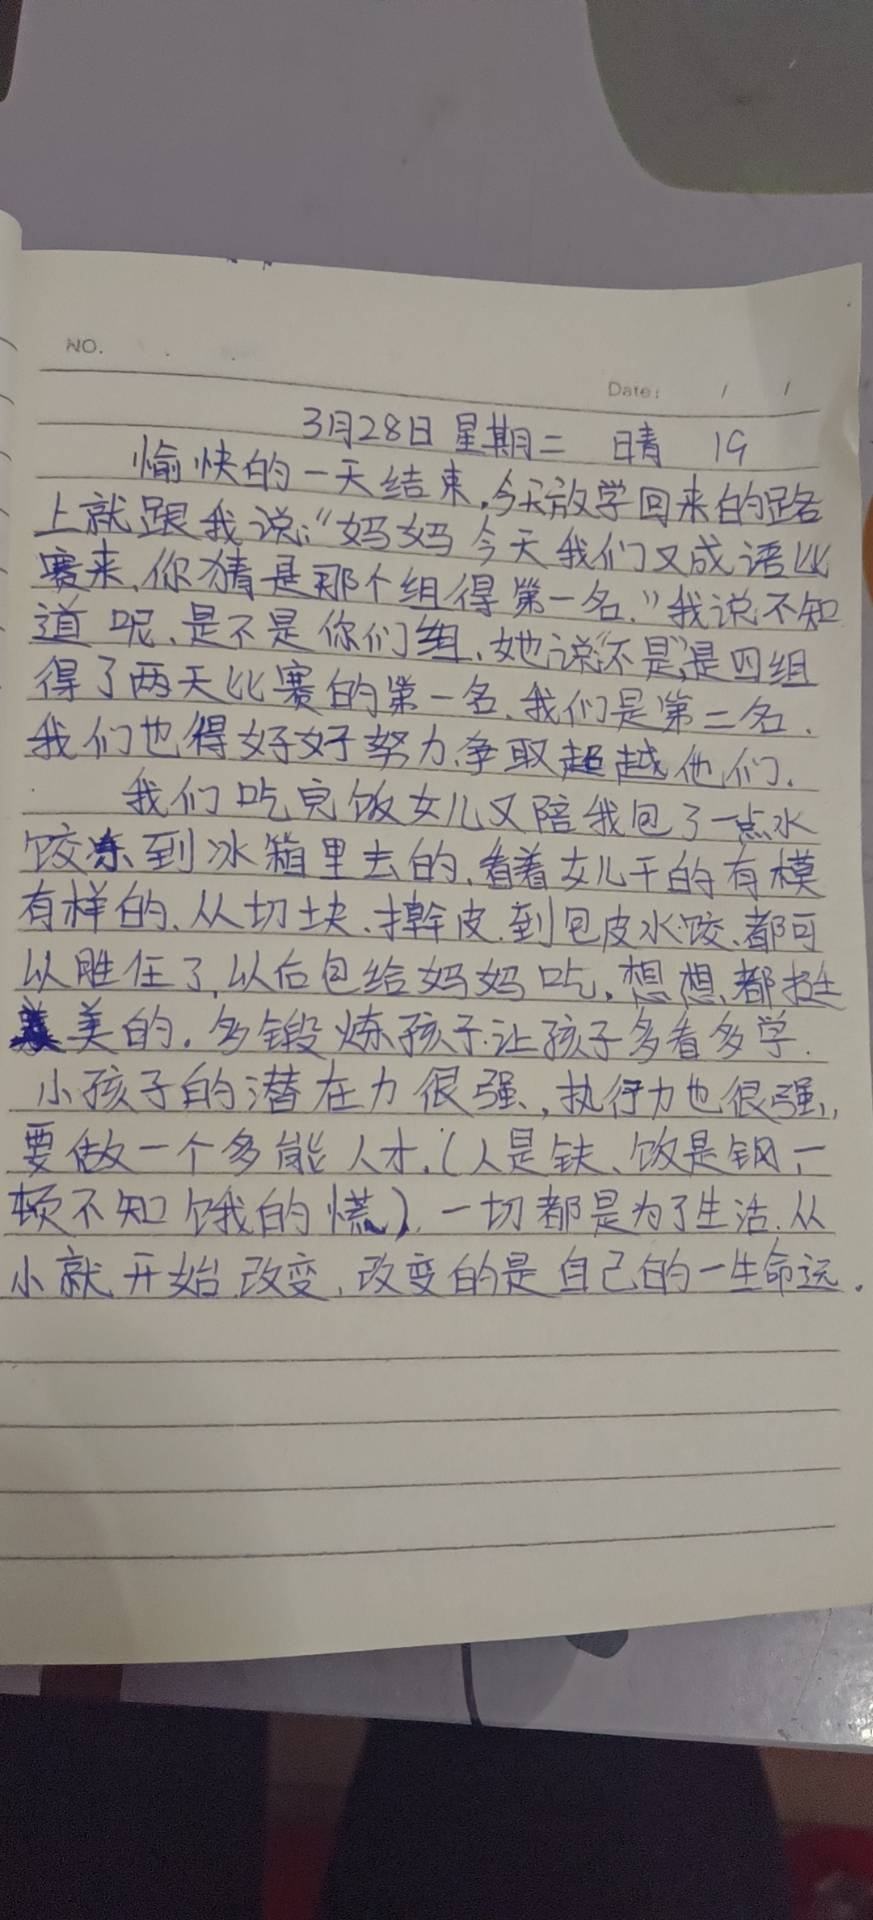 NO.
Date: / /
3月28日 星期二 晴 19
愉快的一天结束,今天放学回来的路
上就跟我说:"妈妈今天我们又成语比
赛来,你猜是那个组得第一名."我说不知
道呢、是不是你们组,她说"不是",是四组
得了两天比赛的第一名、我们是第二名.
我们也得好好努力,争取超越他们.
我们吃完饭女儿又陪我包了一点水
饺冻到冰箱里去的、看着女儿干的有模
有样的、从切块、擀皮.到包皮水饺、都可
以胜任了,以后包给妈妈吃,想想,都挺
美的。多锻炼孩子.让孩子多看多学.
小孩子的潜在力很强、,执行力也很强,
要做一个多能人才.(人是铁、饭是钢一
顿不知饿的慌),一切都是为了生活.从
小就开始改变,改变的是自己的一生命运.